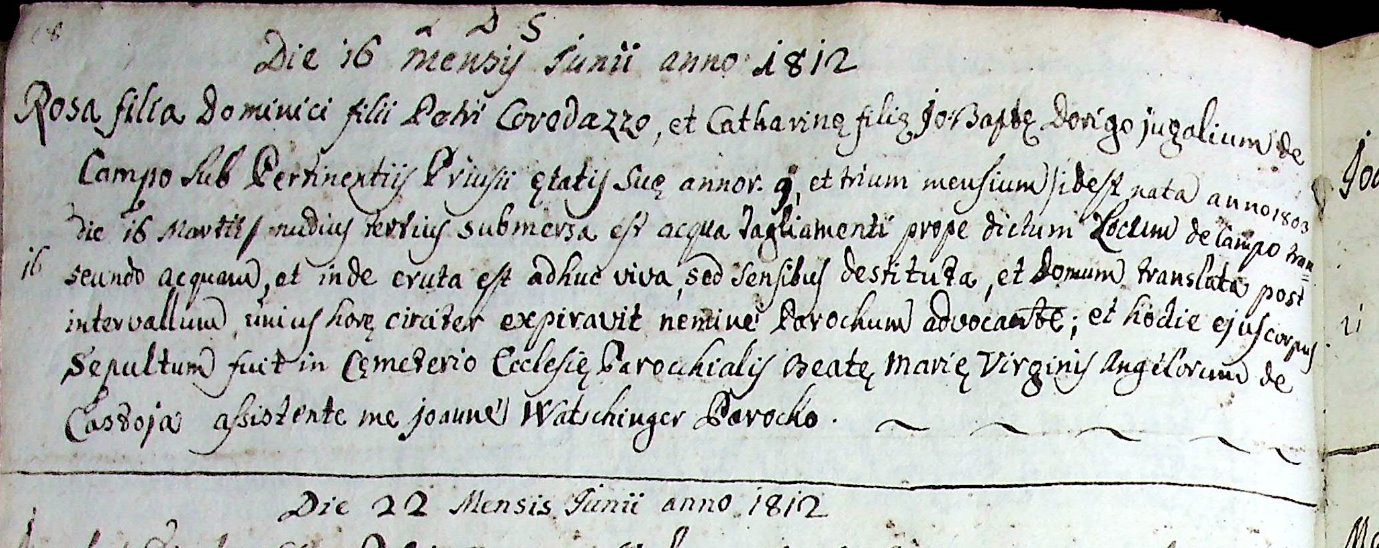 D S
Die 16 mensis Junii anno 1812
Rosa filia Dominici filii Petri Corodazzo, et Catharinę filię Jo: Baptę Dorigo jugalium de
Campo sub Pertinentiis Priusii ętatis suę annor. 9, et trium mensium / idest nata anno 1803
die 16 Martii / nudius tertius submersa est acqua Tagliamenti prope dictum Locum de Campo tran=
16 seundo acquam, et inde eruta est adhuc viva, sed sensibus destituta, et Domum translata post
intervallum unius horę circiter expiravit nemine Parochum advocante; et hodie ejus corpus
sepultum fuit in Cęmeterio Ecclesię Parochialis Beatę Marię Virginis Angelorum de
Castoja assistente me Joanne Watschinger Parocho.
Die 22 Mensis Junii anno 1812